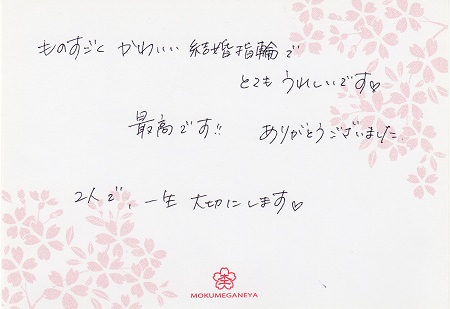 ものすごく かわいい 結婚指輪で
とても うれしいです♡
最高です!! ありがとうございました
2人で、一生 大切にします♡
MOKUMEGANEYA